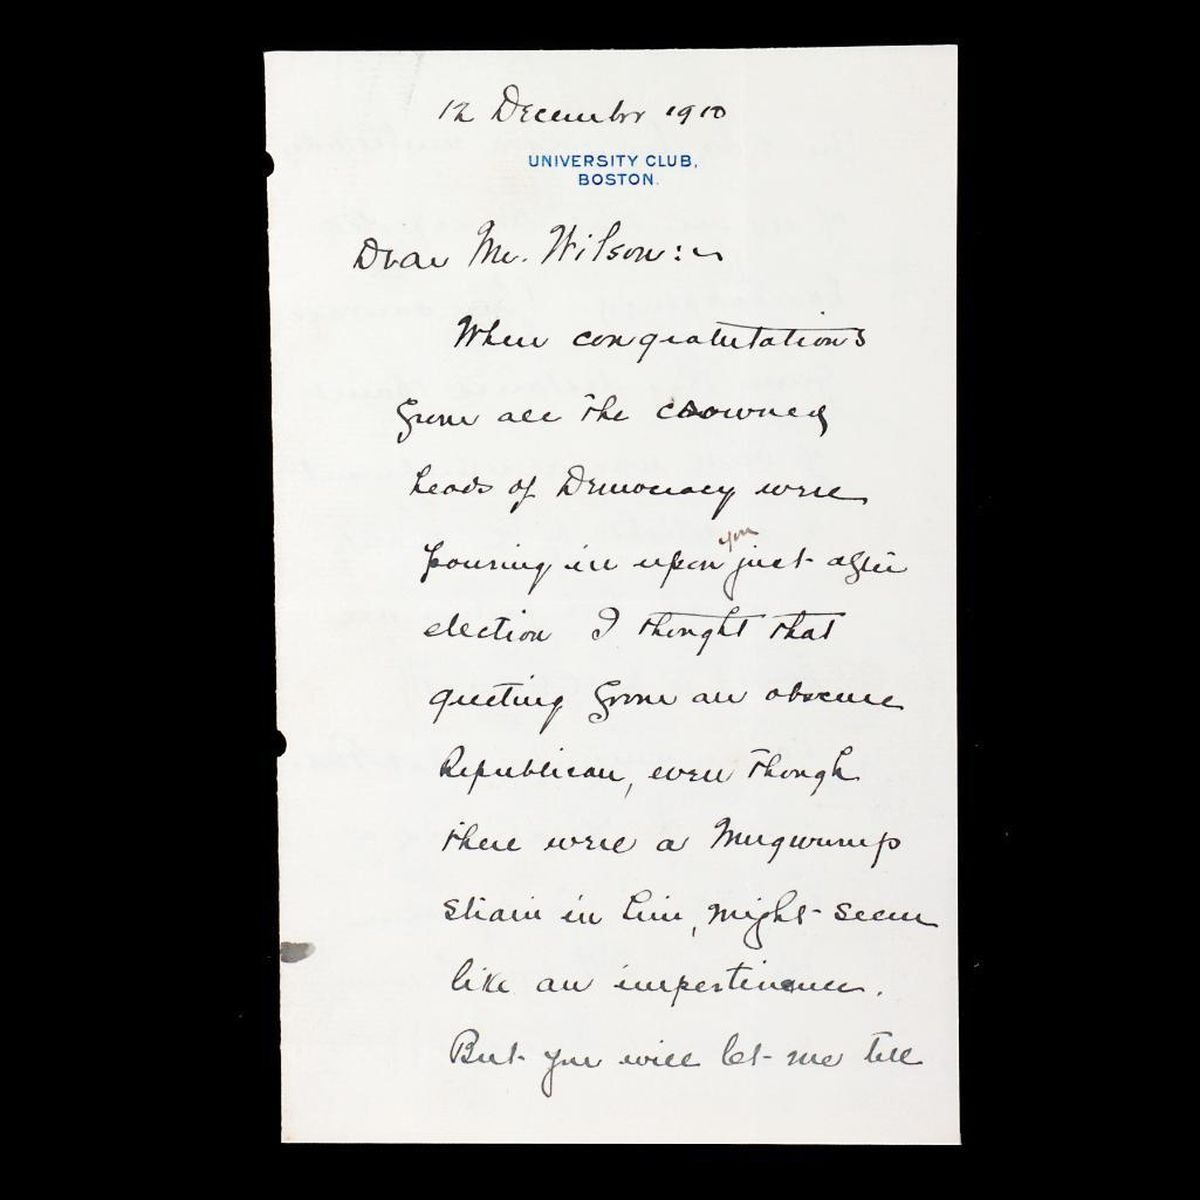 12 December 1910
UNIVERSITY CLUB,
BOSTON.
Dear Mr. Wilson:~
When congratulations
from all the crowned
heads of Democracy were
you
pouring in upon just after
election I thought that
greeting from an obscure
Republican, even though
there were a Mugwump
strain in him, might seem
like an impertinence.
But you will let me tell